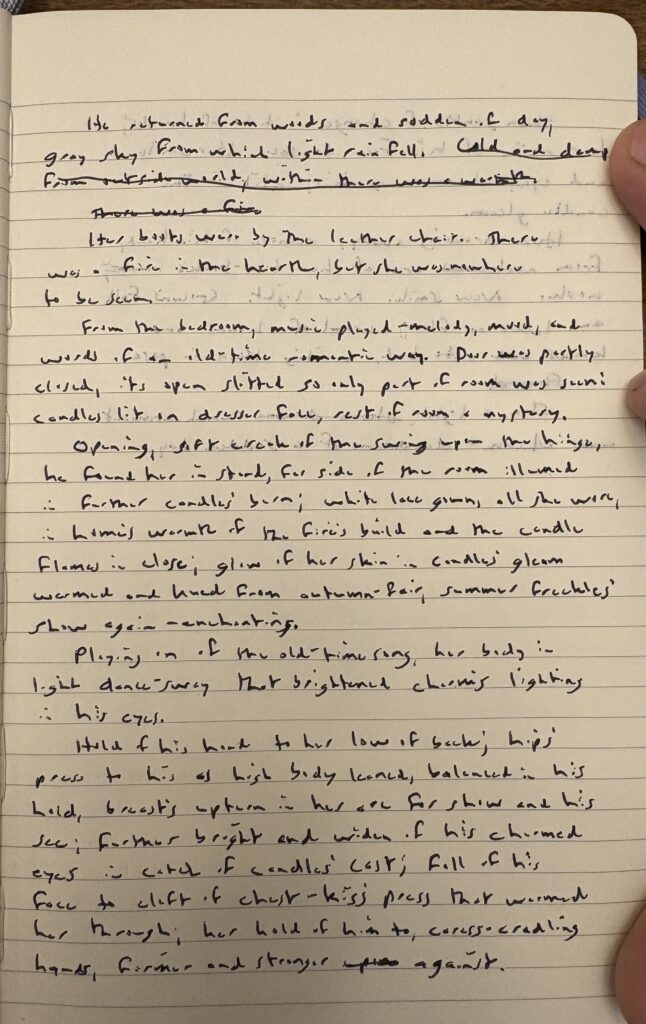 He returned from woods and sodden of day,
gray sky from which light rain fell. Cold and damp
from outside world, within there was a warmth.
There was a fire
Her boots were by the leather chair. There
was a fire in the hearth, but she was nowhere
to be seen.
From the bedroom, music played-melody, mood, and
words of an old-time romantic way. Door was partly
closed, its open slitted so only part of room was seen:
candles lit on dresser face, rest of room a mystery.
Opening, soft creak of the swing upon the hinge,
he found her in stand, far side of the room illumed
in further candles' burn; white lace gown, all she wore,
in home's warmth of the fire's build and the candle
flames in close; glow of her skin in candles' gleam
warmed and hued from autumn-fair, summer freckles'
show again-enchanting.
Playing on of the old-time song, her body in
light dance-sway that brightened charm's lighting
in his eyes.
Hold of his hand to her low of back; hips'
press to his as high body leaned, balanced in his
hold, breasts upturn in her arc for show and his
see; further bright and widen of his charmed
eyes in catch of candles' cast; fall of his
face to cleft of chest-kiss' press that warmed
her through; her hold of him to, caress-cradling
hands, firmer and stronger against.